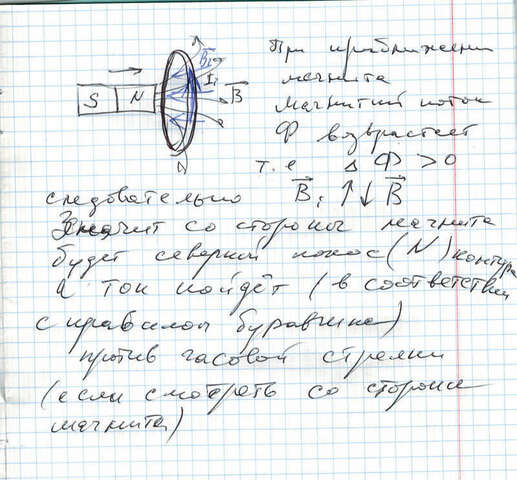 При приближении
магнита
Магнитный поток
Ф возрастает
т.е ΔФ > 0
следовательно B⃗ᵢ ↑↓ B⃗
Значит со стороны магнита
будет северный полюс (N) контура
а ток пойдёт (в соответствии
с правилом буравчика)
против часовой стрелки
(если смотреть со стороны
магнита)
S N
B⃗ᵢ
Iᵢ
B⃗